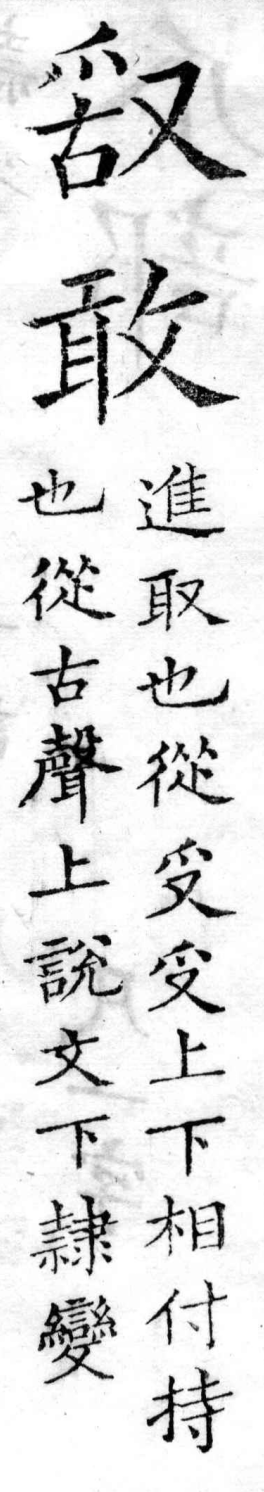 𣪏
敢
進取也從𠬪𠬪上下相付持
也從古聲上說文下隸變